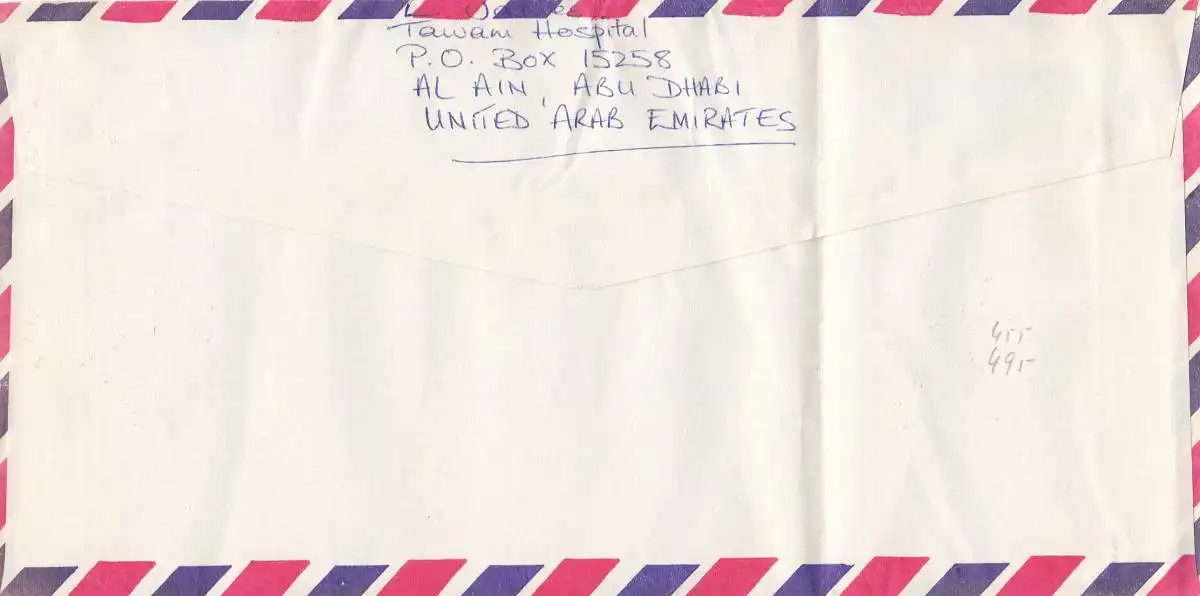 Tawam Hospital
P.O. Box 15258
AL AIN, ABU DHABI
UNITED ARAB EMIRATES
49,-